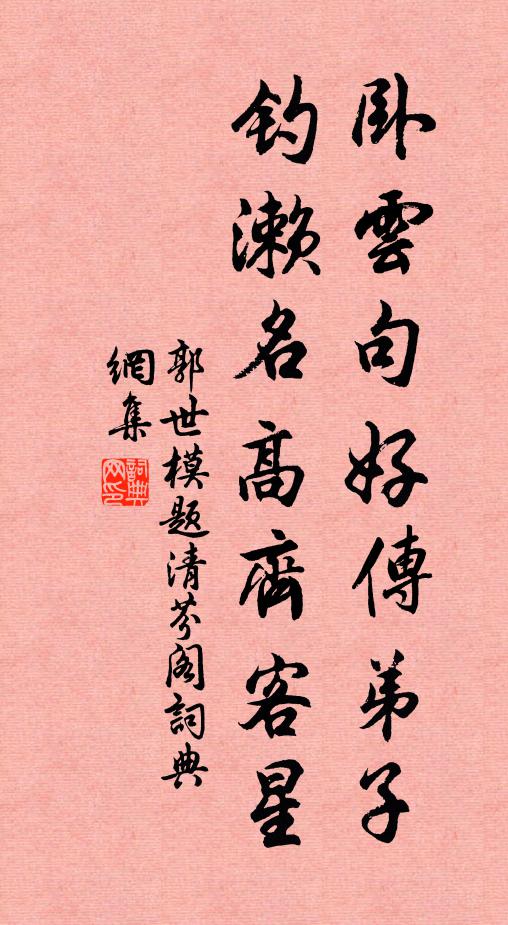 卧雲句好傳弟子
釣瀨名高齊客星
郭世模題清芬閣詞典
網集
詞典網印